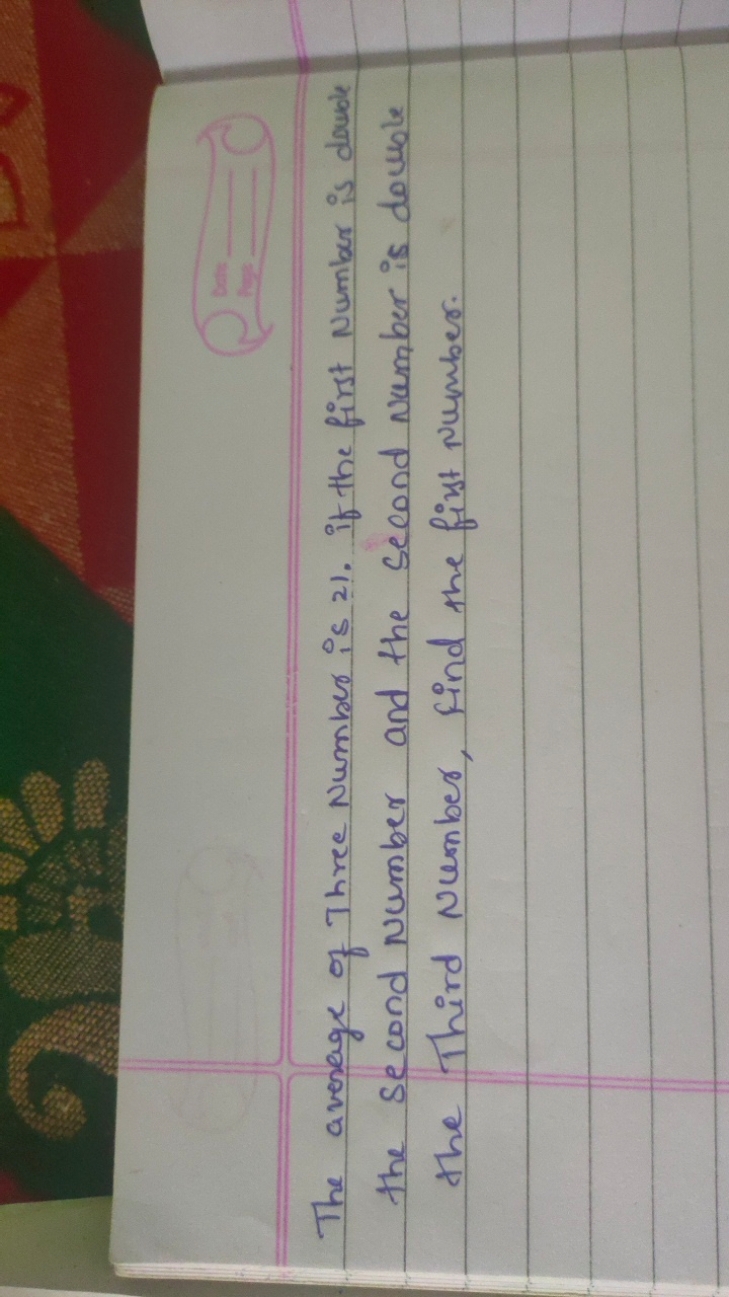 Date
Page
The average of Three Number is 21. if the first Number is double
the second Number and the second Number is double
the Third Number, find the first Number.